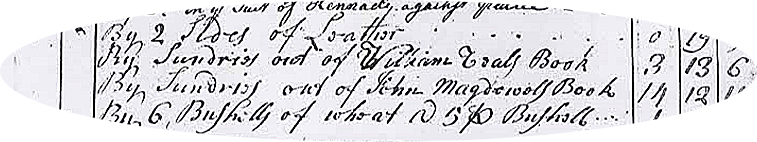 of Kennady against
By 2 Sides of Leather 0 19
By Sundries out of William Teals Book 3 13 6
By Sundries out of John Magdowols Book 14 12
By 6, Bushells of wheat @ 5 Bushell